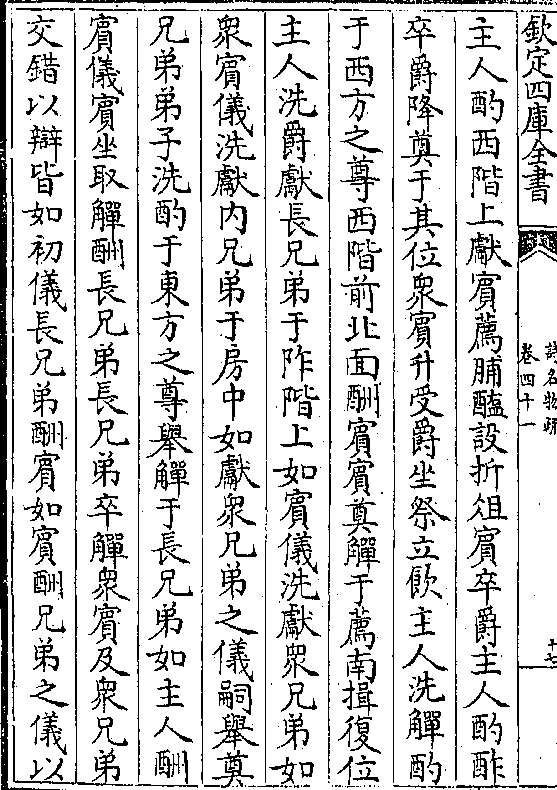 欽定四庫全書
詩名物疏
卷四十一
十七
主人酌西階上獻賓薦脯醢設折俎賓卒爵主人酌酢
卒爵降奠于其位衆賓升受爵坐祭立飲主人洗觶酌
于西方之尊西階前北面酬賓賓奠觶于薦南揖復位
主人洗爵獻長兄弟于阼階上如賓儀洗獻衆兄弟如
衆賓儀洗獻内兄弟于房中如獻衆兄弟之儀嗣舉奠
兄弟弟子洗酌于東方之尊舉觶于長兄弟如主人酬
賓儀賓坐取觶酬長兄弟長兄弟卒觶衆賓及衆兄弟
交錯以辯皆如初儀長兄弟酬賓如賓酬兄弟之儀以